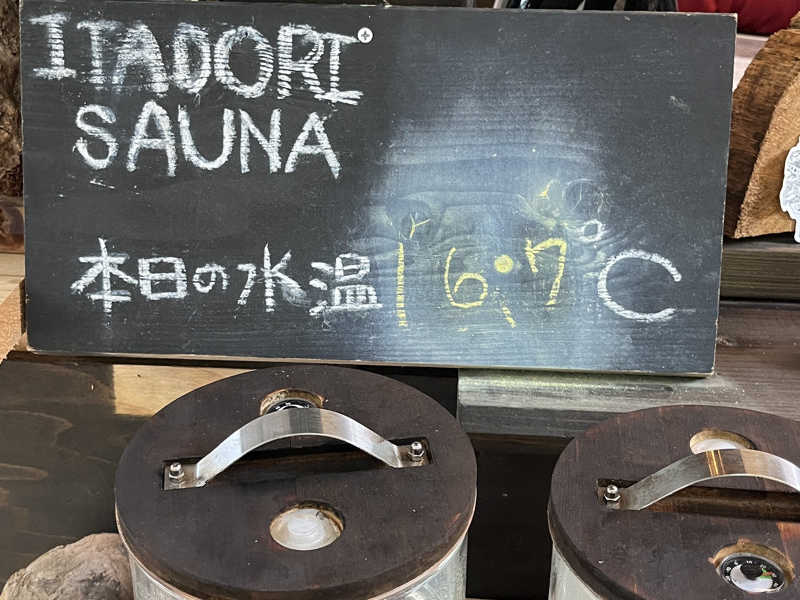 ITADORI
SAUNA
本日の水温 16.7℃